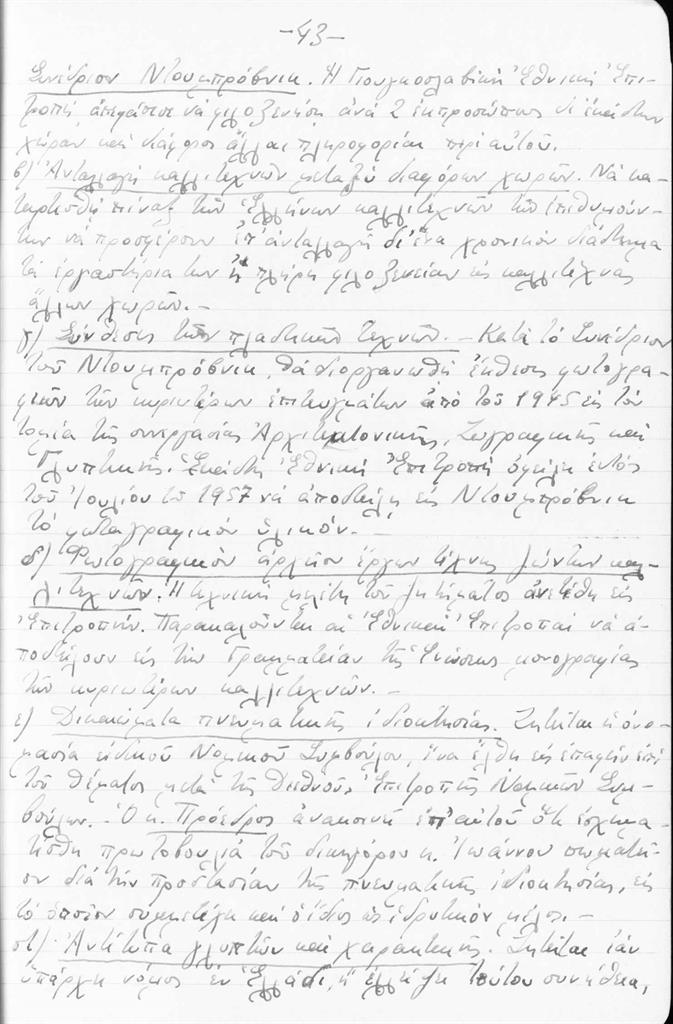 -43-
Συνέδριον Ντουμπρόβνικ. Ἡ Γιουγκοσλαβική Ἐθνική Ἐπι-
τροπή ἀπεφάσισε νά φιλοξενήση ἀνά 2 ἐκπροσώπους δι' ἑκάστην
χώραν καί διάφοροι ἄλλαι πληροφορίαι περί αὐτοῦ.
β) Ἀνταλλαγή καλλιτεχνῶν μεταξύ διαφόρων χωρῶν. Νά κα-
ταρτισθῆ πίναξ τῶν Ἑλλήνων καλλιτεχνῶν τῶν ἐπιθυμούν-
των νά προσφέρουν ἐπ' ἀνταλλαγῆ δι' ἕνα χρονικόν διάστημα
τά ἐργαστήρια των ἤ πλήρη φιλοξενίαν εἰς καλλιτέχνας
ἄλλων χωρῶν.-
γ) Σύνθεσις τῶν πλαστικῶν τεχνῶν.- Κατά τό Συνέδριον
τοῦ Ντουμπρόβνικ, θά διοργανωθῆ ἔκθεσις φωτογρα-
φιῶν τῶν κυριωτέρων ἐπιτευγμάτων ἀπό τοῦ 1945 εἰς τόν
τομέα τῆς συνεργασίας Ἀρχιτεκτονικῆς, Ζωγραφικῆς καί
Γλυπτικῆς. Ἑκάστη Ἐθνική Ἐπιτροπή ὀφείλει ἐντός
τοῦ Ἰουλίου τοῦ 1957 νά ἀποστείλη εἰς Ντουμπρόβνικ
τό φωτογραφικόν ὑλικόν.-
δ) Φωτογραφικόν ἀρχεῖον ἔργων τέχνης ζώντων καλ-
λιτεχνῶν. Ἡ τεχνική μελέτη τοῦ ζητήματος ἀνετέθη εἰς
Ἐπιτροπήν. Παρακαλοῦνται αἱ Ἐθνικαί Ἐπιτροπαί νά ἀ-
ποστείλουν εἰς τήν Γραμματείαν τῆς Ἑνώσεως μονογραφίας
τῶν κυριωτέρων καλλιτεχνῶν.-
ε) Δικαιώματα πνευματικῆς ἰδιοκτησίας. Ζητεῖται ἡ ὀνο-
μασία εἰδικοῦ Νομικοῦ Συμβούλου, ἵνα ἔλθη εἰς ἐπαφήν ἐπί
τοῦ θέματος μετά τῆς Διεθνοῦς Ἐπιτροπῆς Νομικῶν Συμ-
βούλων.- Ὁ κ. Πρόεδρος ἀνακοινοῖ ἐπ' αὐτοῦ ὅτι ἐσχημα-
τίσθη πρωτοβουλία τοῦ δικηγόρου κ. Ἰωάννου σωματεῖ-
ον διά τήν προστασίαν τῆς πνευματικῆς ἰδιοκτησίας, εἰς
τό ὁποῖον συμμετέχει καί ὁ ἴδιος ὡς ἱδρυτικόν μέλος.-
στ) Ἀντίτυπα γλυπτῶν καί χαρακτικῆς. Ζητεῖται ἐάν
ὑπάρχη νόμος ἐν Ἑλλάδι, ἤ ἐλλείψει τούτου συνήθεια,